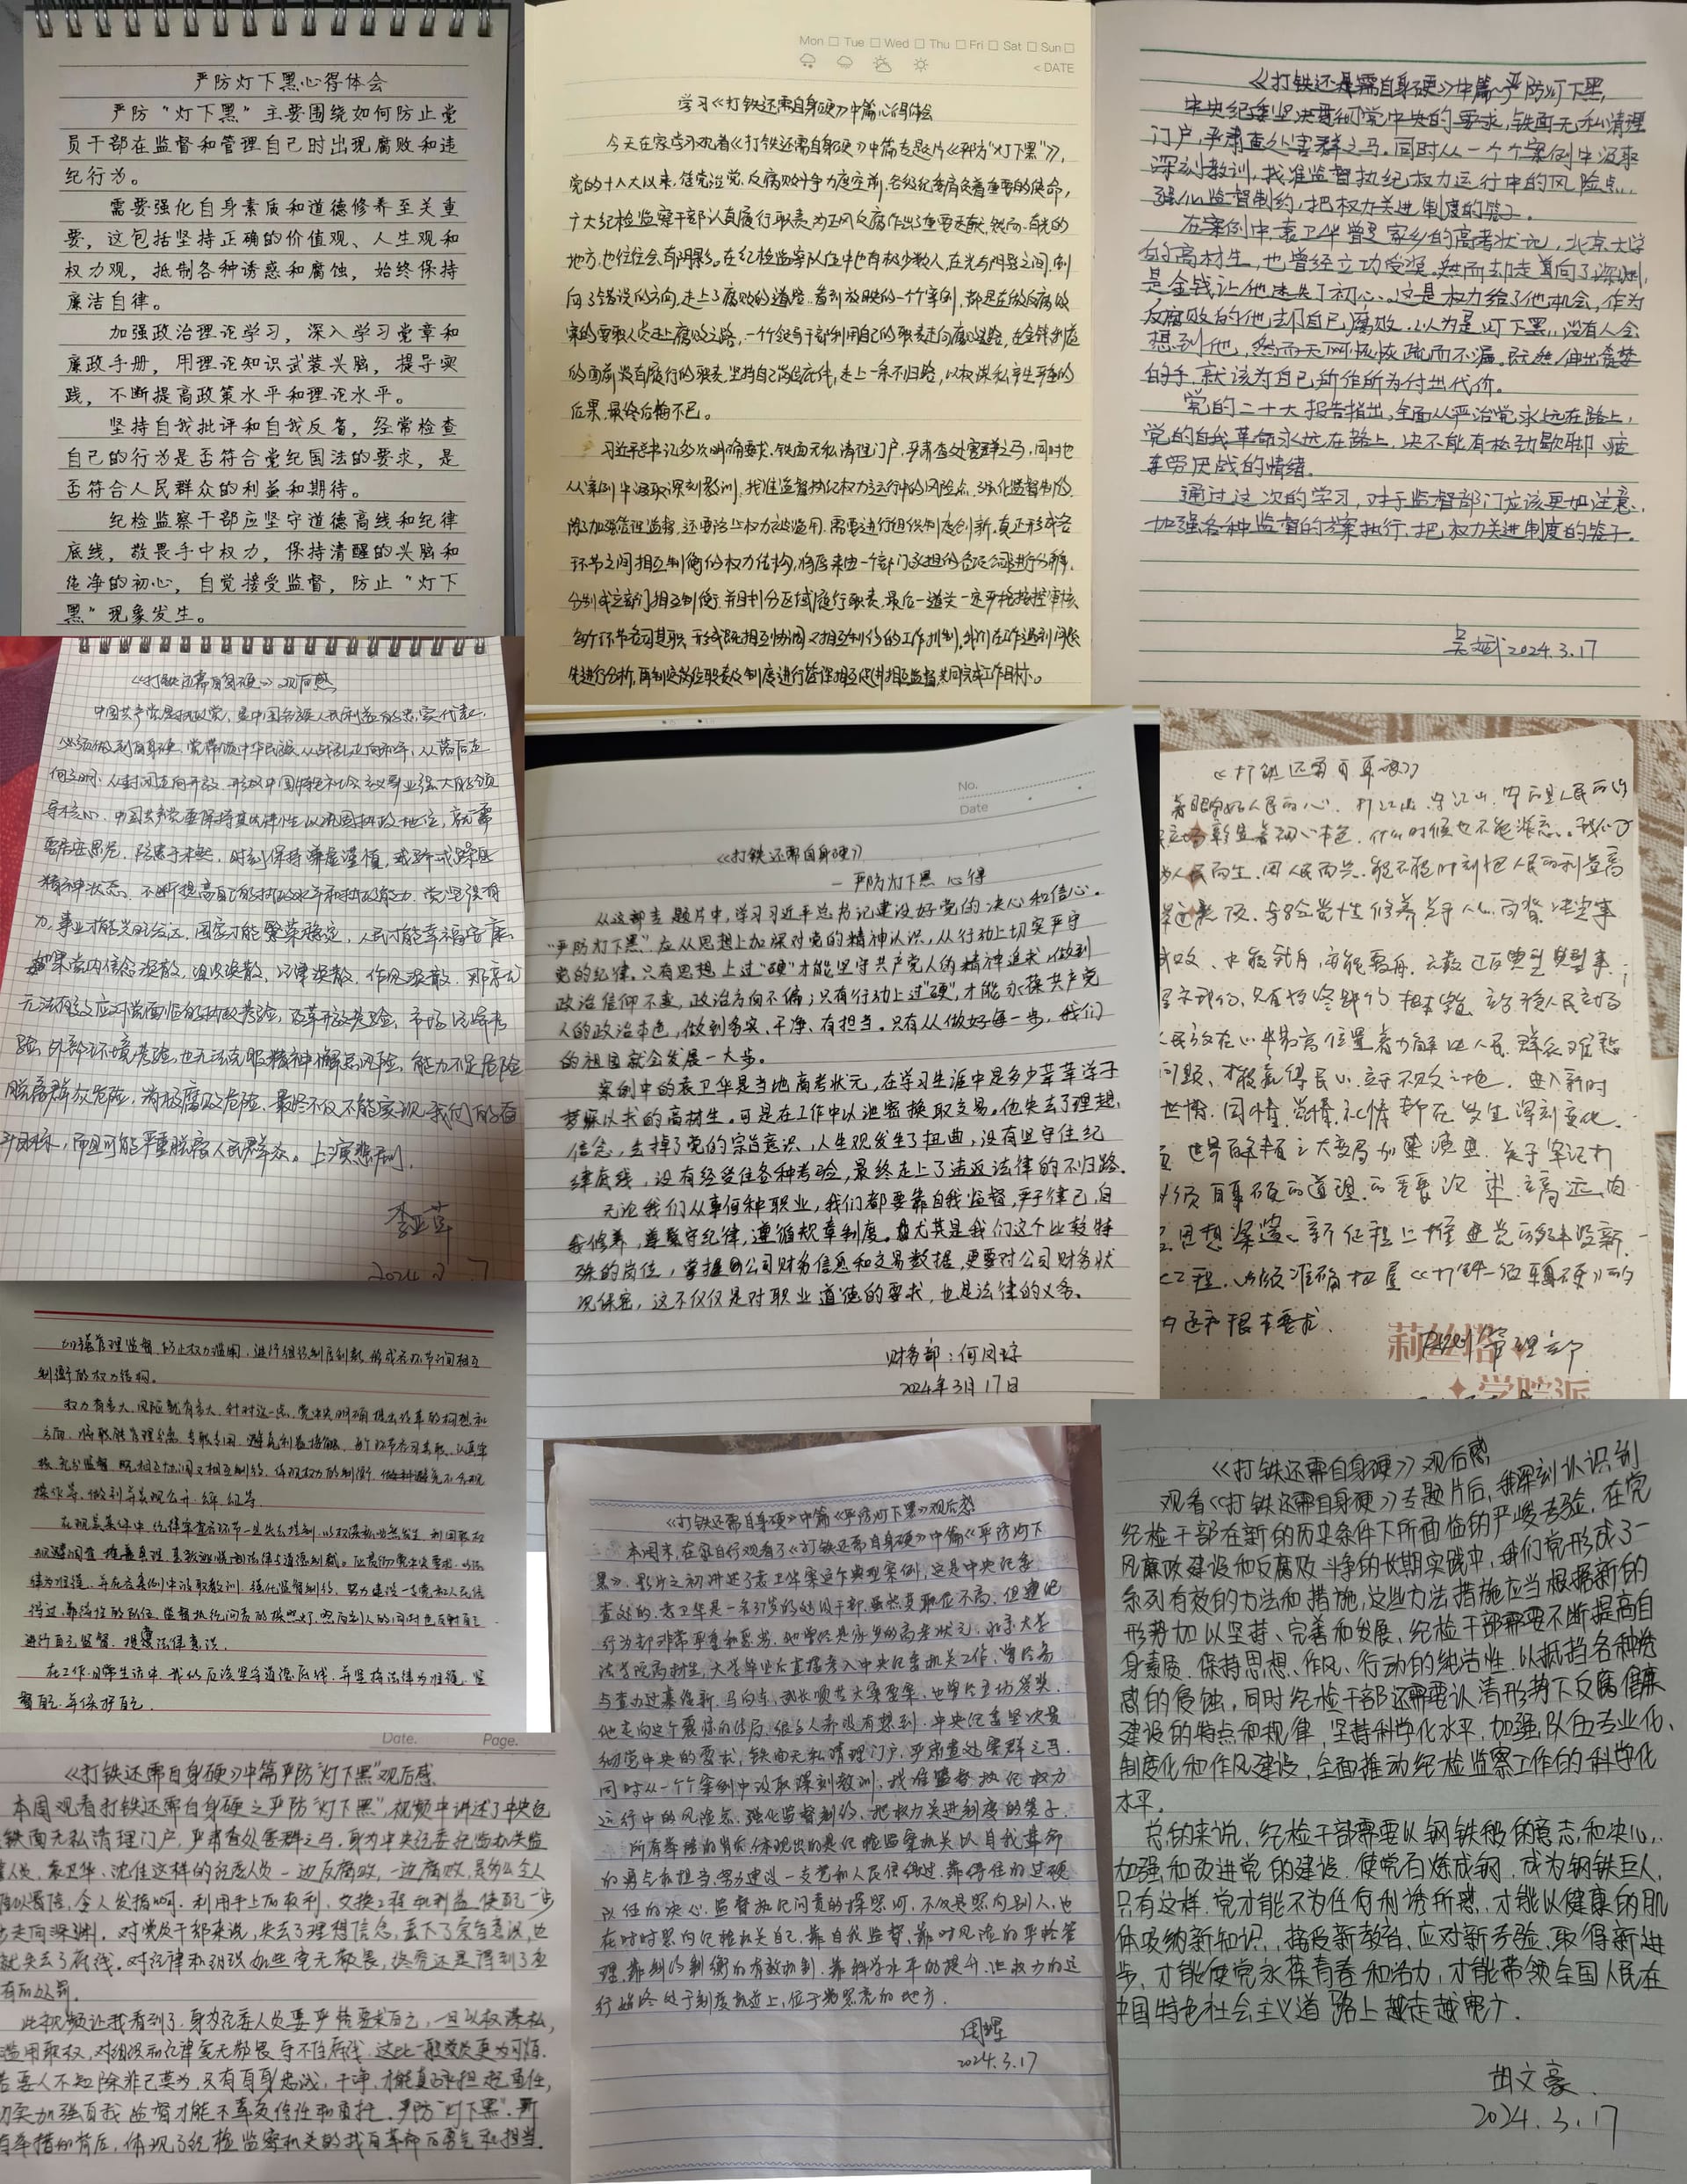 严防灯下黑心得体会
严防“灯下黑”主要围绕如何防止党
员干部在监督和管理自己时出现腐败和违
纪行为。
需要强化自身素质和道德修养至关重
要,这包括坚持正确的价值观、人生观和
权力观,抵制各种诱惑和腐蚀,始终保持
廉洁自律。
加强政治理论学习,深入学习党章和
廉政手册,用理论知识武装头脑,提导实
践,不断提高政策水平和理论水平。
坚持自我批评和自我反省,经常检查
自己的行为是否符合党纪国法的要求,是
否符合人民群众的利益和期待。
纪检监察干部应坚守道德高线和纪律
底线,敬畏手中权力,保持清醒的头脑和
纯净的初心,自觉接受监督,防止“灯下
黑”现象发生。
Mon Tue Wed Thu Fri Sat Sun
< DATE
学习《打铁还需自身硬》中篇心得体会
今天在家学习观看《打铁还需自身硬》中篇专题片《严防“灯下黑”》,
党的十八大以来,从严治党、反腐败斗争力度空前,各级纪委肩负着重要的使命,
广大纪检监察干部认真履行职责,为正风反腐作出了重要贡献,然而,有光的
地方,也往往会有阴影。在纪检监察队伍中也有极少数人,在光与阴影之间,倒
向了错误的方向,走上了腐败的道路。看到放映的一个个案例,都是在做反腐败
案的要职人员走上腐败之路,一个领导干部利用自己的职责走向腐败道路,在金钱利益
的面前没有履行的职责,坚持自己岗位底线,走上一条不归路,以权谋私产生严重的
后果,最终后悔不已。
习近平总书记多次明确要求,铁面无私清理门户,严肃查处害群之马,同时也
从案例中汲取深刻教训,找准监督执纪权力运行中的风险点,强化监督制约,
除了加强管理监督,还要防止权力被滥用,需要进行组织制度创新,真正形成各
环节之间相互制衡的权力结构,将原来由一个部门承担的各项公司进行分解,
分别成立部门相互制衡,并且划分区域履行职责,最后一道关一定严格把控审核
每个环节各司其职,形成既相互协调又相互制约的工作机制,我们在工作遇到问题
先进行分析,再制定岗位职责及制度进行管保相互促进相互监督,共同完成工作目标。
《打铁还是需自身硬》中篇~严防灯下黑
中央纪委坚决贯彻党中央的要求,铁面无私清理
门户,严肃查处害群之马。同时从一个个案例中汲取
深刻教训,找准监督执纪权力运行中的风险点,
强化监督制约,把权力关进制度的笼子。
在案例中,袁卫华曾是家乡的高考状元,北京大学
的高材生,也曾经立功受奖。然而却走向了深渊,
是金钱让他迷失了初心。这是权力给了他机会,作为
反腐败的他却自己腐败。以为是灯下黑,没有人会
想到他,然而天网恢恢疏而不漏。既然伸出贪婪
的手,就该为自己所作所为付出代价。
党的二十大报告指出,全面从严治党永远在路上,
党的自我革命永远在路上,决不能有松劲歇脚、疲
劳厌战的情绪。
通过这次的学习,对于监督部门应该更加注意,
加强各种监督的方案执行,把权力关进制度的笼子。
吴斌 2024.3.17
《打铁还需自身硬》观后感
中国共产党是执政党,是中国各族人民利益的忠实代表,
必须做到自身硬,党带领中华民族从战乱走向和平,从落后走
向文明,从封闭走向开放,形成中国特色社会主义事业强大的领
导核心。中国共产党要保持其先进性以巩固执政地位,就需
要居安思危,防患于未然,时刻保持谦虚谨慎,戒骄戒躁的
精神状态。不断提高自己的执政水平和执政能力,党坚强有
力,事业才能兴旺发达,国家才能繁荣稳定,人民才能幸福安康。
如果党内信念涣散,组织涣散,纪律涣散,作风涣散,那就
无法有效应对党面临的执政考验,改革开放考验,市场经济考
验,外部环境考验,也无法克服精神懈怠风险,能力不足危险
脱离群众危险,消极腐败危险,最终不仅不能实现我们的奋
斗目标,而且可能严重脱离人民群众。上演悲剧。
李亚萍
No.
Date
《打铁还需自身硬》
— 严防灯下黑 心得
从这部专题片中,学习习近平总书记建设好党的决心和信心。
“严防灯下黑”应从思想上加深对党的精神认识,从行动上切实严守
党的纪律。只有思想上过“硬”才能坚守共产党人的精神追求,做到
政治信仰不变,政治方向不偏;只有行动上过“硬”,才能永葆共产党
人的政治本色,做到务实、干净、有担当。只有从做好每一步,我们
的祖国就会发展一大步。
案例中的袁卫华是当地高考状元,在学习生涯中是多少莘莘学子
梦寐以求的高材生。可是在工作中以泄密换取交易。他失去了理想、
信念,丢掉了党的宗旨意识,人生观发生了扭曲,没有坚守住纪
律底线,没有经受住各种考验,最终走上了违返法律的不归路。
无论我们从事何种职业,我们都要靠自我监督,严于律己,自
我修养,遵守纪律,遵循规章制度。尤其是我们这个比较特
殊的岗位,掌握公司财务信息和交易数据,更要对公司财务状
况保密,这不仅仅是对职业道德的要求,也是法律的义务。
财务部:何风婷
2024年3月17日
《打铁还需自身硬》
着眼守好人民的心。打江山、守江山,守的是人民的心
为人民而生,因人民而兴,能不能时刻把人民的利益高
民放在心中最高位置,着力解决人民群众难愁
问题,才能赢得民心,立于不败之地。进入新时
世情、国情、党情、社情都在发生深刻变化。
管理部
莉丝洛
学院派
加强管理监督,防止权力滥用,进行组织制度创新,形成各环节之间相互
制衡的权力结构。
权力有多大,风险就有多大,针对这一点,党中央明确提出改革的构想和
方向,将职能管理分离,专职专间,避免利益接触,每个环节各司其职,认真审
核,充分监督,既相互协调又相互制约,体现权力的制衡,
操作等,做到并实现公开、公正、公平
得过、靠得住的队伍,监督执纪问责的探照灯,照向别人的同时也反射自己
进行自己监督,提高法律意识。
在工作、日常生活中,我们应该坚守道德底线,并坚持法律为准绳,监
督自己,并保护自己。
Date. Page.
《打铁还需自身硬》中篇严防“灯下黑”观后感
本周观看打铁还需自身硬之严防“灯下黑”,视频中讲述了中央纪
铁面无私清理门户,严肃查处害群之马,身为中央纪委纪监机关监
人员,袁卫华、沈佳这样的纪委人员一边反腐败,一边腐败,是多么令人
难以置信,令人发指呵,利用手上的权利,交换工程和利益,使自己一步
步走向深渊。对党员干部来说,失去了理想信念,丢下了宗旨意识,也
就失去了底线。对纪律和组织如此毫无敬畏,终究还是得到了应
有的处罚。
此视频让我看到了,身为纪委人员要严格要求自己,一旦以权谋私,
滥用职权,对组织和纪律毫无敬畏,守不住底线,这比一般党员更为可恨。
若要人不知除非己莫为,只有自身忠诚,干净,才能真正承担起重任,
切实加强自我监督才能不辜负信任和重托。严防“灯下黑”,所
有举措的背后,体现了纪检监察机关的自我革命的勇气和担当。
《打铁还需自身硬》中篇《严防灯下黑》观后感
本周末,在家自行观看了《打铁还需自身硬》中篇《严防灯下
黑》,影片之初讲述了袁卫华案这个典型案例,这是中央纪委
查处的,袁卫华是一名37岁的处级干部,虽然其职位不高,但违纪
行为却非常严重和恶劣。他曾经是家乡的高考状元,北京大学
法学院高材生,大学毕业后直接考入中央纪委机关工作,曾经参
与查办过慕绥新、马向东、武长顺等大案要案,也曾经立功受奖。
他走向这个震惊的结局,很多人都没有想到。中央纪委坚决贯
彻党中央的要求,铁面无私清理门户,严肃查处害群之马,
同时从一个个案例中汲取深刻教训,找准监督执纪权力
运行中的风险点,强化监督制约,把权力关进制度的笼子。
所有举措的背后,体现出的是纪检监察机关以自我革命
的勇气和担当,努力建设一支党和人民信得过、靠得住的过硬
队伍的决心。监督执纪问责的探照灯,不仅是照向别人,也
在时时照向纪检机关自己,靠自我监督,靠对风险的严格管
理,靠制约制衡的有效机制,靠科学水平的提升,让权力的运
行始终处于制度轨道上,位于光照亮的地方。
周辉
2024.3.17
《打铁还需自身硬》观后感
观看《打铁还需自身硬》专题片后,我深刻认识到
纪检干部在新的历史条件下所面临的严峻考验,在党
风廉政建设和反腐败斗争的长期实践中,我们党形成了一
系列有效的方法和措施,这些方法措施应当根据新的
形势加以坚持、完善和发展,纪检干部需要不断提高自
身素质,保持思想、作风、行动的纯洁性,以抵挡各种诱
惑的侵蚀,同时纪检干部还需要认清形势下反腐倡廉
建设的特点和规律,坚持科学化水平,加强队伍专业化、
制度化和作风建设,全面推动纪检监察工作的科学化
水平。
总的来说,纪检干部需要以钢铁般的意志和决心,
加强和改进党的建设,使党百炼成钢,成为钢铁巨人,
只有这样,党才能不为任何利诱所惑,才能以健康的肌
体吸纳新知识,接受新教育,应对新考验,取得新进
步,才能使党永葆青春和活力,才能带领全国人民在
中国特色社会主义道路上越走越宽广。
胡文豪
2024.3.17